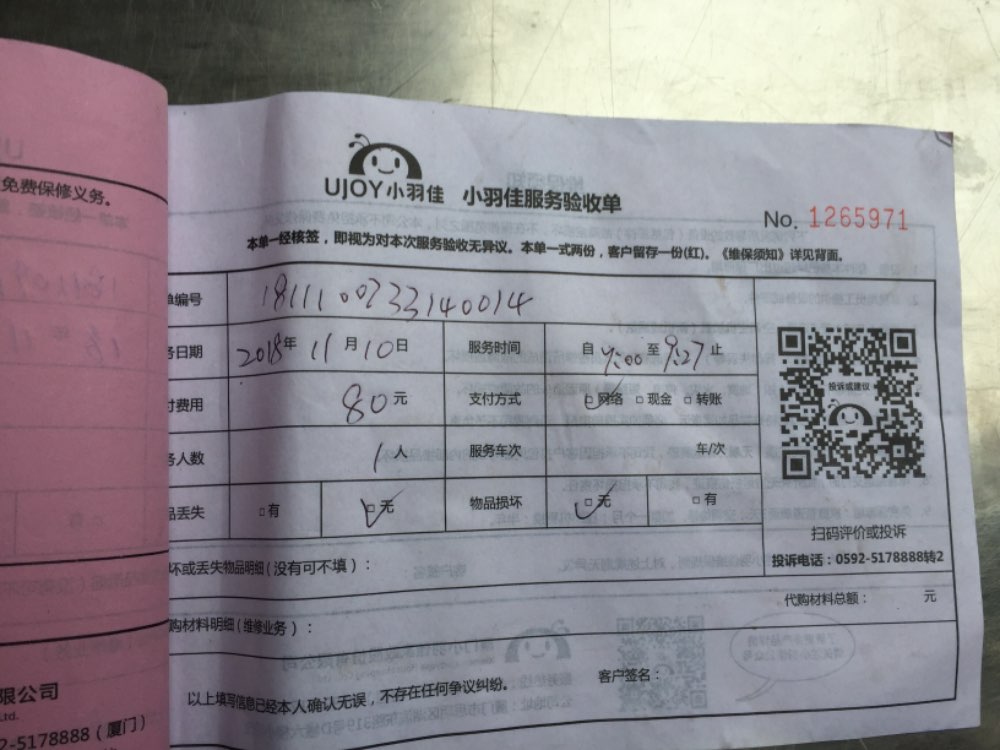 免费保修义务。
UJOY小羽佳 小羽佳服务验收单
No. 1265971
本单一经核签，即视为对本次服务验收无异议。本单一式两份，客户留存一份(红)。《维保须知》详见背面。
单编号 1811100733140014
务日期 2018年 11月10日 服务时间 自 9:00 至 9:27 止
付费用 80元 支付方式 □网络 □现金 □转账
务人数 1人 服务车次 车/次
品丢失 □有 □无 物品损坏 □无 □有
投诉或建议
扫码评价或投诉
投诉电话：0592-5178888转2
坏或丢失物品明细(没有可不填)：
代购材料总额： 元
购材料明细(维修业务)：
客户签名：
以上填写信息已经本人确认无误，不存在任何争议纠纷。
限公司
Ltd.
2-5178888（厦门）